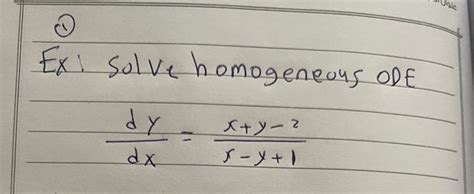 ①
Ex: solve homogeneous ODE
dy/dx = x+y-2/x-y+1